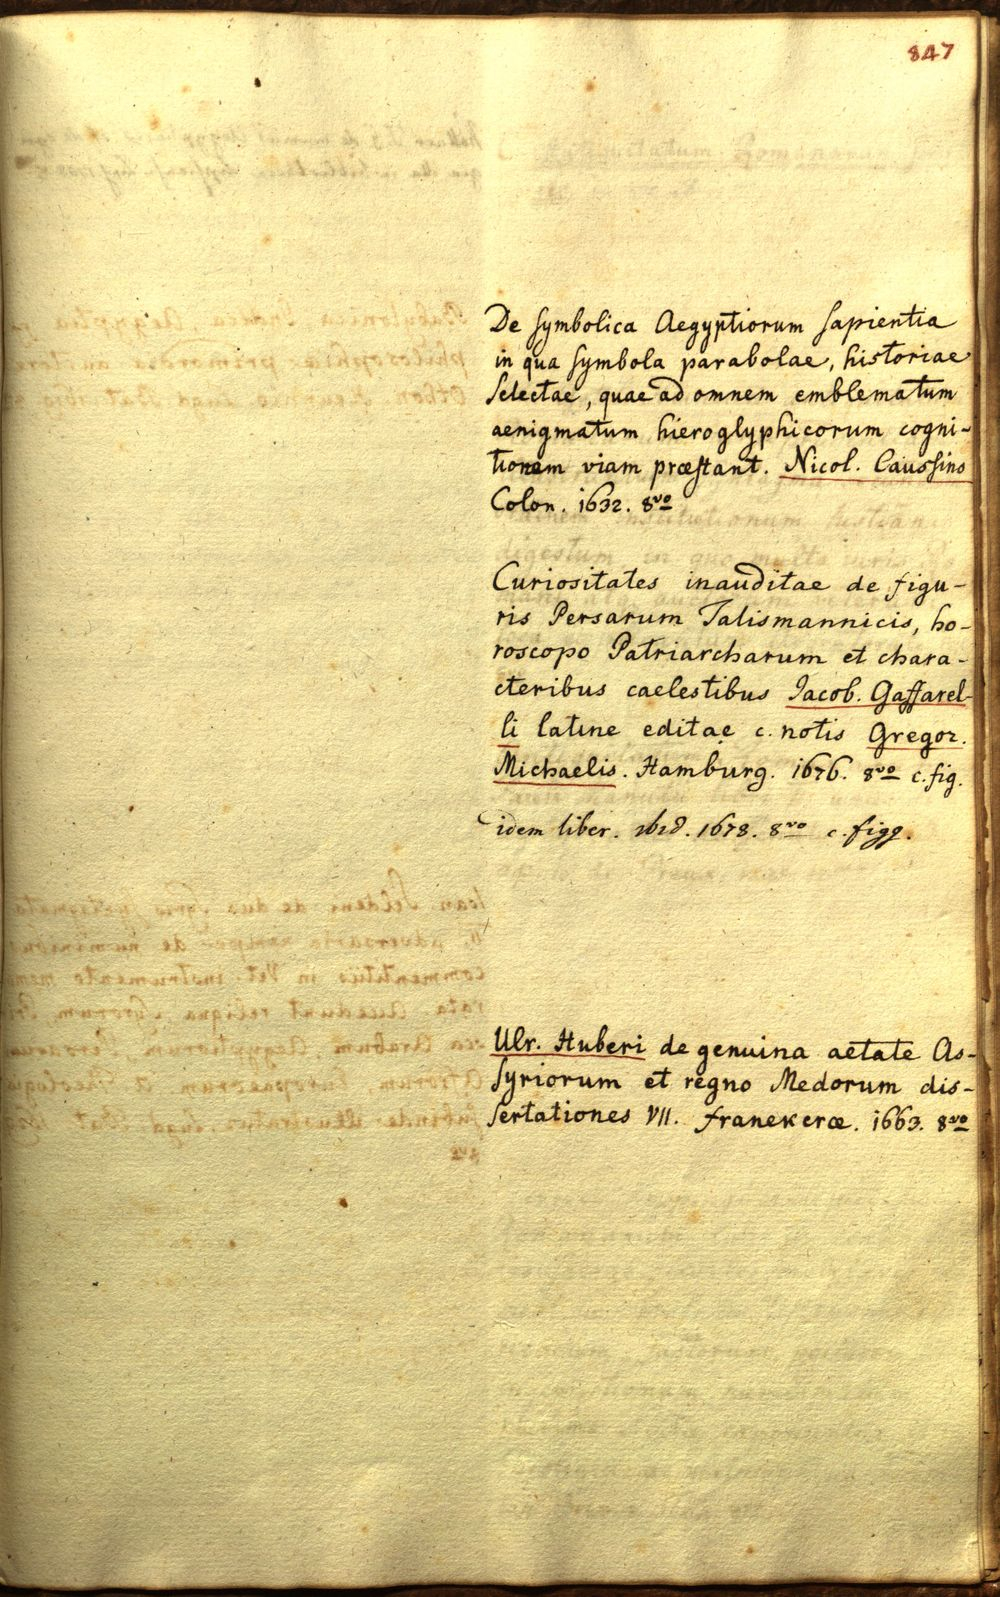 847
De symbolica Aegyptiorum sapientia
in qua symbola parabolae, historiae
selectae, quae ad omnem emblematum
aenigmatum hieroglyphicorum cogni-
tionem viam præstant. Nicol. Caussino
Colon. 1632. 8vo
Curiositates inauditae de figu-
ris Persarum Talismannicis, ho-
roscopo Patriarcharum et chara-
cteribus caelestibus Jacob. Gaffarel-
li latine editae c. notis Gregor.
Michaelis. Hamburg. 1676. 8vo c. fig.
idem liber. ibid. 1678. 8vo c. figg.
Ulr. Huberi de genuina aetate As-
syriorum et regno Medorum dis-
sertationes VII. franekeræ. 1663. 8vo